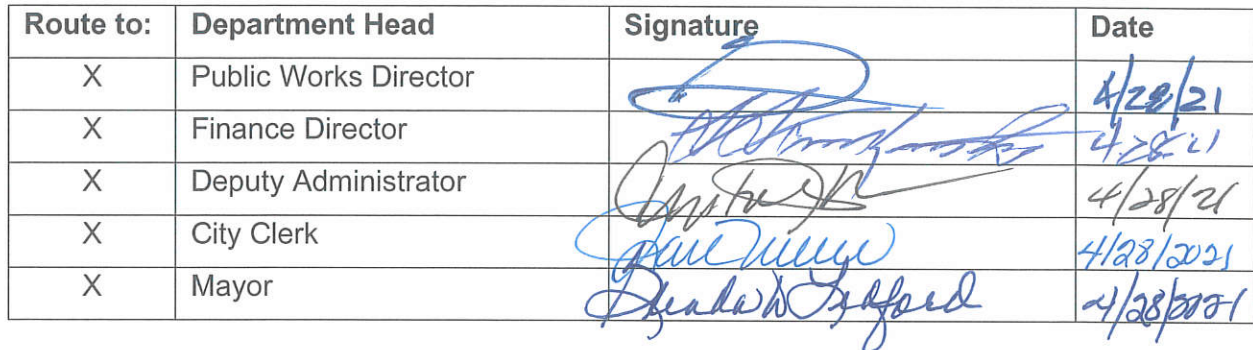 Route to: Department Head Signature Date
X Public Works Director 4/28/21
X Finance Director 4/28/21
X Deputy Administrator 4/28/21
X City Clerk 4/28/2021
X Mayor Brenda W Fredford 4/28/2021